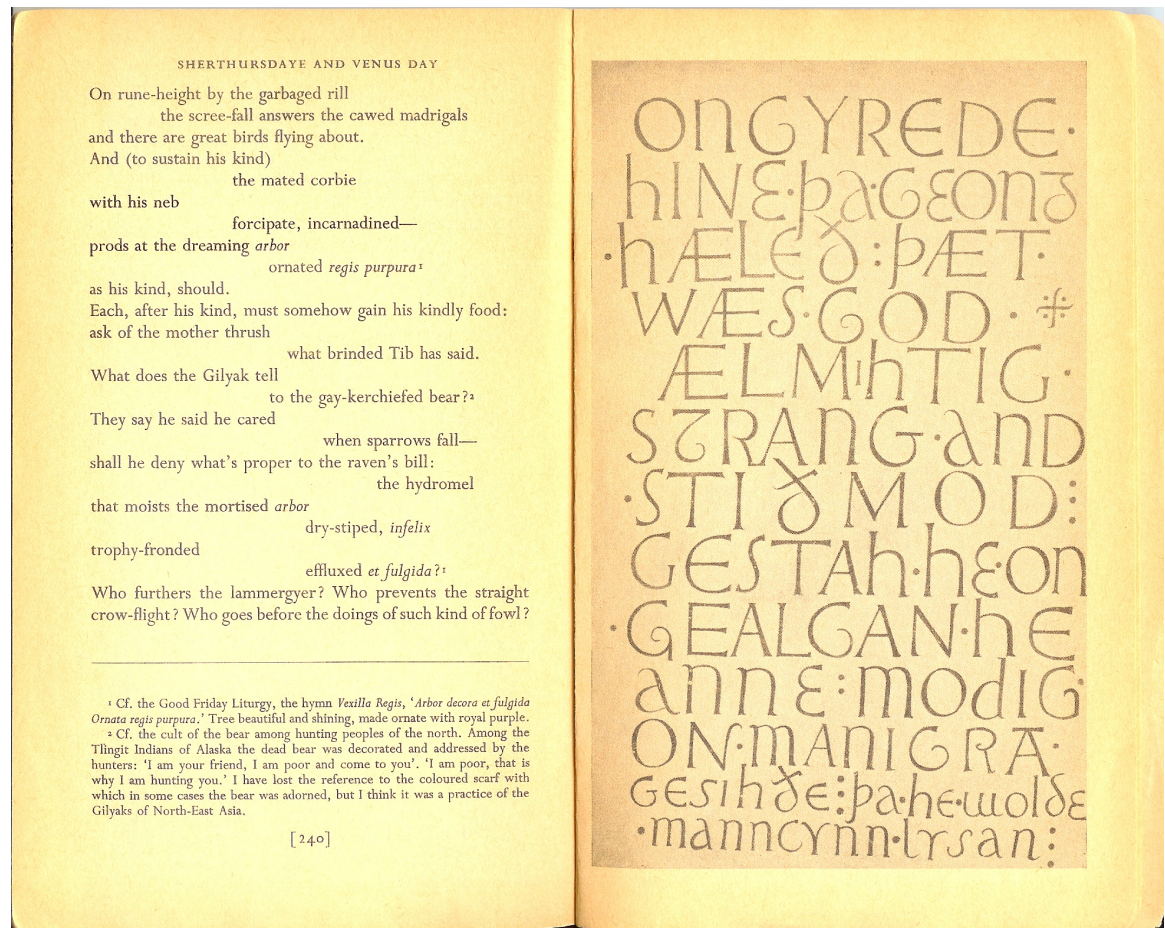 SHERTHURSDAYE AND VENUS DAY
On rune-height by the garbaged rill
the scree-fall answers the cawed madrigals
and there are great birds flying about.
And (to sustain his kind)
the mated corbie
with his neb
forcipate, incarnadined—
prods at the dreaming arbor
ornated regis purpura¹
as his kind, should.
Each, after his kind, must somehow gain his kindly food:
ask of the mother thrush
what brinded Tib has said.
What does the Gilyak tell
to the gay-kerchiefed bear?²
They say he said he cared
when sparrows fall—
shall he deny what's proper to the raven's bill:
the hydromel
that moists the mortised arbor
dry-stiped, infelix
trophy-fronded
effluxed et fulgida?¹
Who furthers the lammergyer? Who prevents the straight
crow-flight? Who goes before the doings of such kind of fowl?
¹ Cf. the Good Friday Liturgy, the hymn Vexilla Regis, 'Arbor decora et fulgida
Ornata regis purpura.' Tree beautiful and shining, made ornate with royal purple.
² Cf. the cult of the bear among hunting peoples of the north. Among the
Tlingit Indians of Alaska the dead bear was decorated and addressed by the
hunters: 'I am your friend, I am poor and come to you'. 'I am poor, that is
why I am hunting you.' I have lost the reference to the coloured scarf with
which in some cases the bear was adorned, but I think it was a practice of the
Gilyaks of North-East Asia.
[240]
OnGYREDE·
hINE·þa·GEONG
·hÆLEð:þÆT·
WÆS·GOD·
ÆLMIhTIG·
STRANG·aND
·STIðMOD⁝
GESTAh·hE·On
·GEALGAN·hE
annE⁝MOdIG·
ON·MANIGRA·
GESIhðE⁝þa·he·wolde
·manncynn·lysan⁝